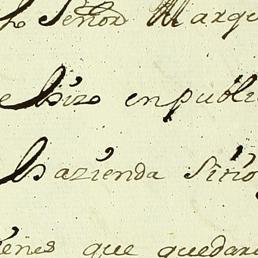 Señor Marqu
e hizo enpubli
hazienda Sirio
ienes que quedaro